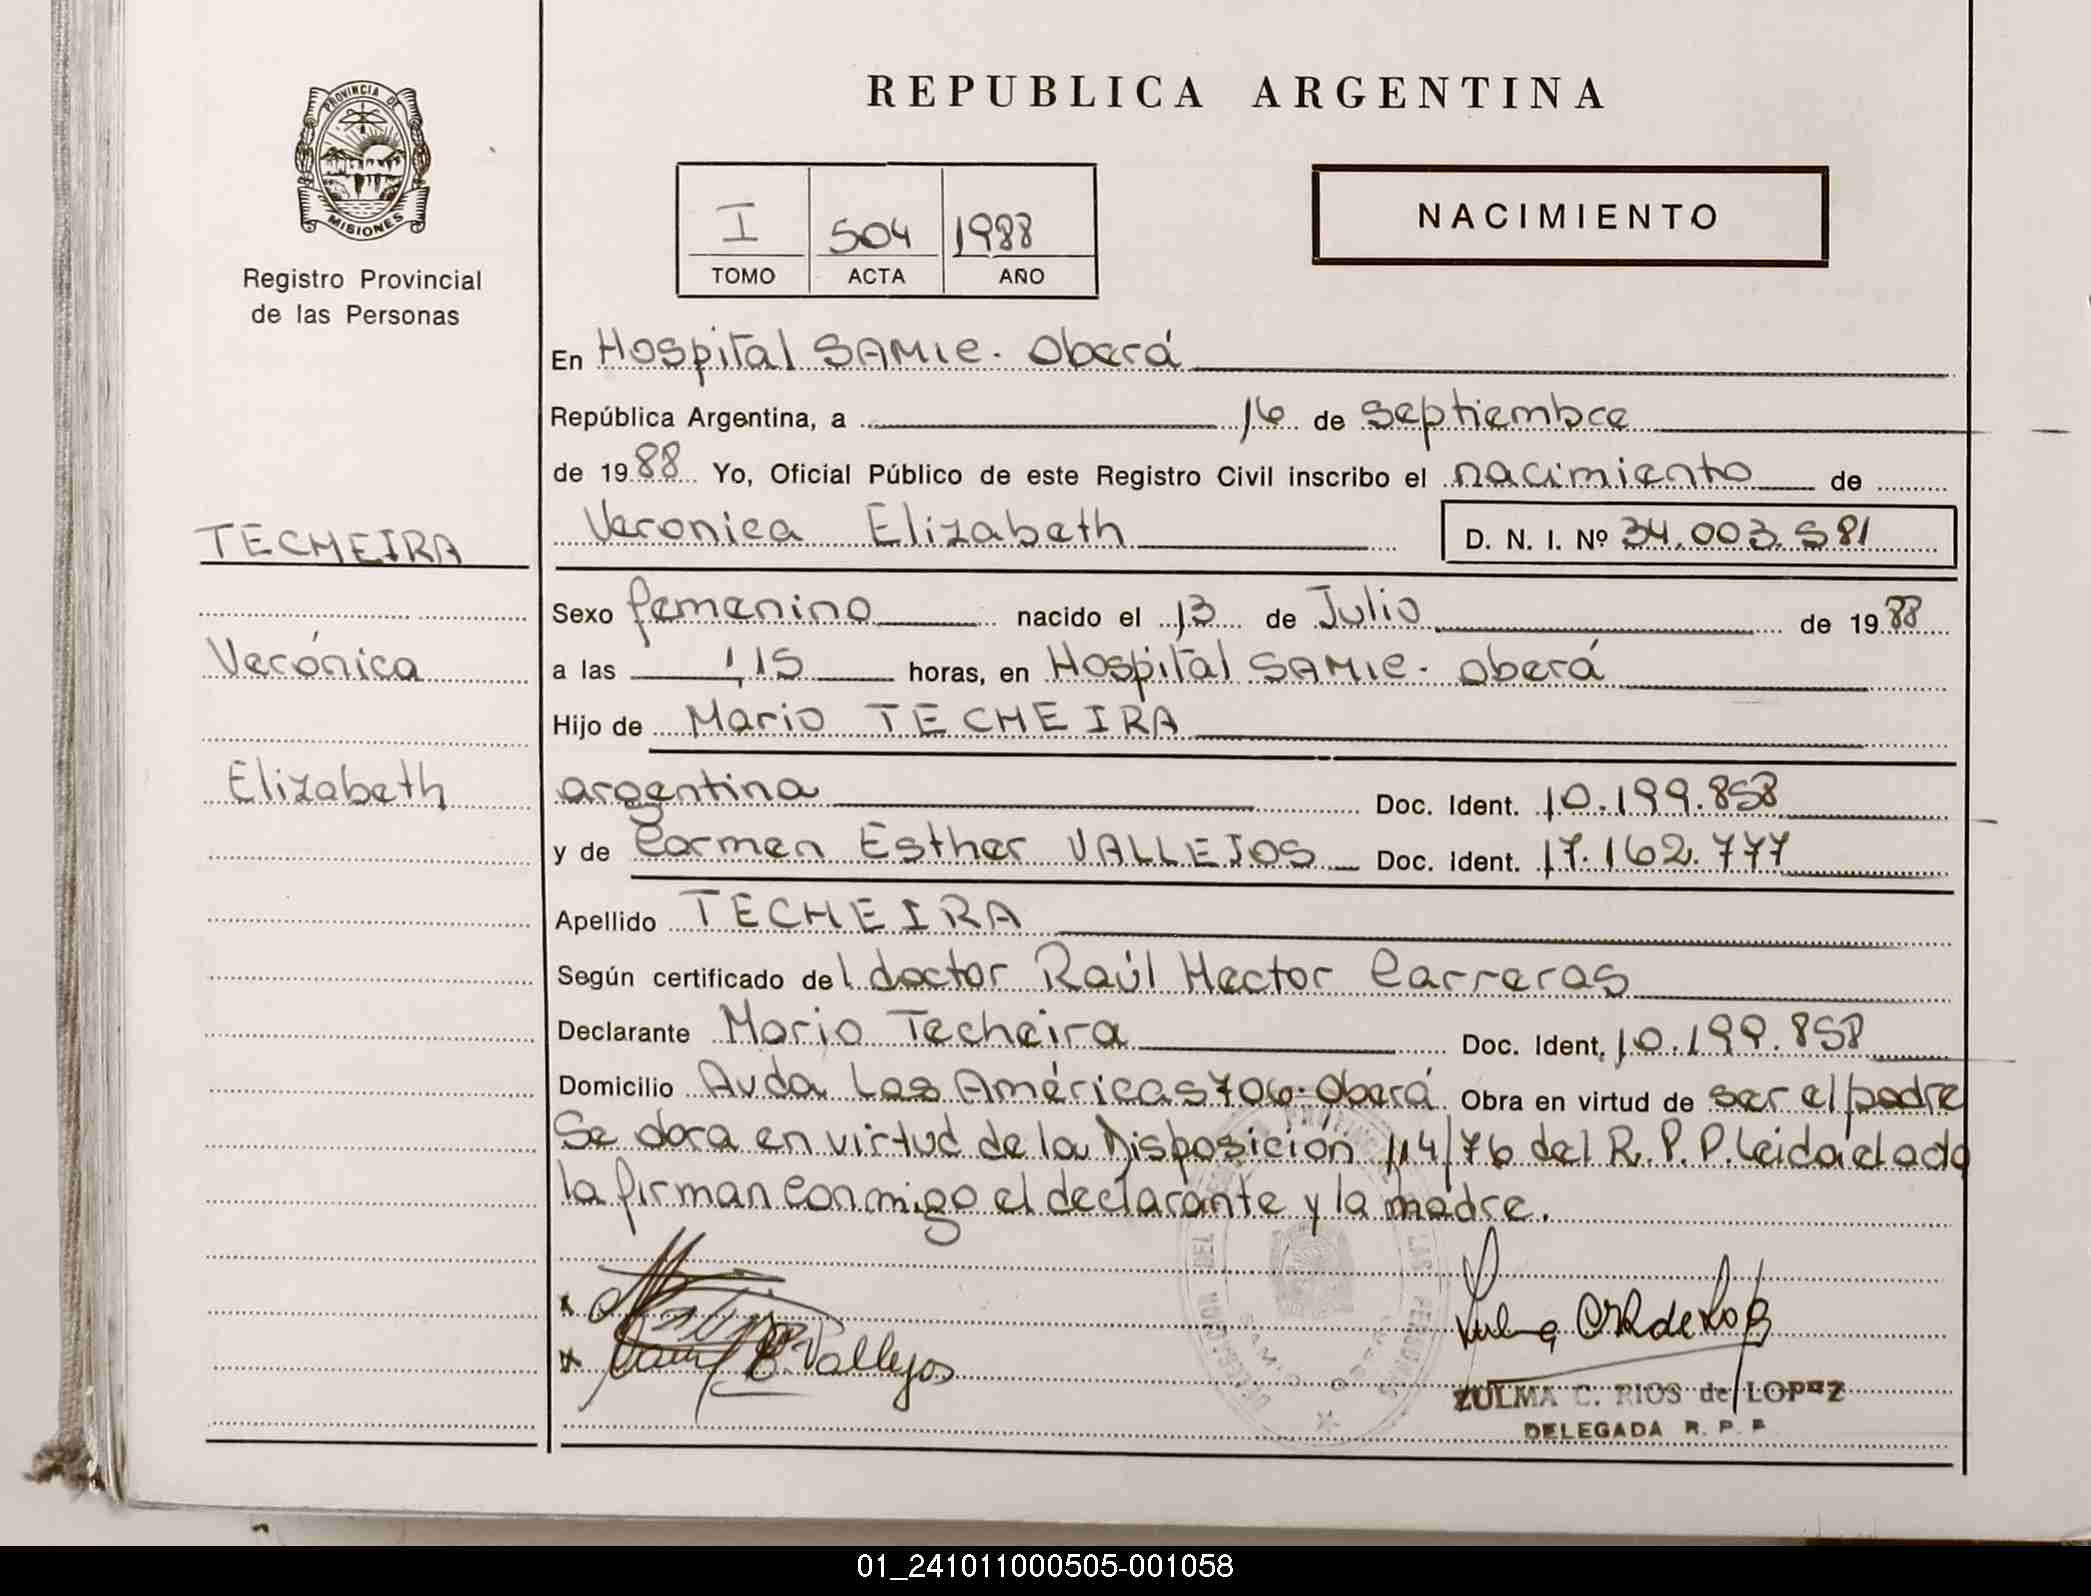 PROVINCIA DE
MISIONES
Registro Provincial
de las Personas
TECHEIRA
Verónica
Elizabeth
REPUBLICA ARGENTINA
I 504 1988
TOMO ACTA AÑO
NACIMIENTO
En Hospital SAMIC. Oberá
República Argentina, a 16 de septiembre
de 1988 Yo, Oficial Público de este Registro Civil inscribo el nacimiento de
Veronica Elizabeth D. N. I. Nº 34.003.581
Sexo femenino nacido el 13 de Julio de 1988
a las 1,15 horas, en Hospital SAMIC. Oberá
Hijo de Mario TECHEIRA
argentina Doc. Ident. 10.199.858
y de Carmen Esther VALLEJOS Doc. Ident. 17.162.777
Apellido TECHEIRA
Según certificado del doctor Raúl Hector Carreras
Declarante Mario Techeira Doc. Ident. 10.199.858
Domicilio Avda Las Américas 706-Oberá Obra en virtud de ser el padre
Se dora en virtud de la Disposición 114/76 del R.P.P. Leida el acta
la firman conmigo el declarante y la madre.
x
x E. Vallejos
ZULMA C. RIOS de LOPEZ
DELEGADA R. P. P.
01_241011000505-001058